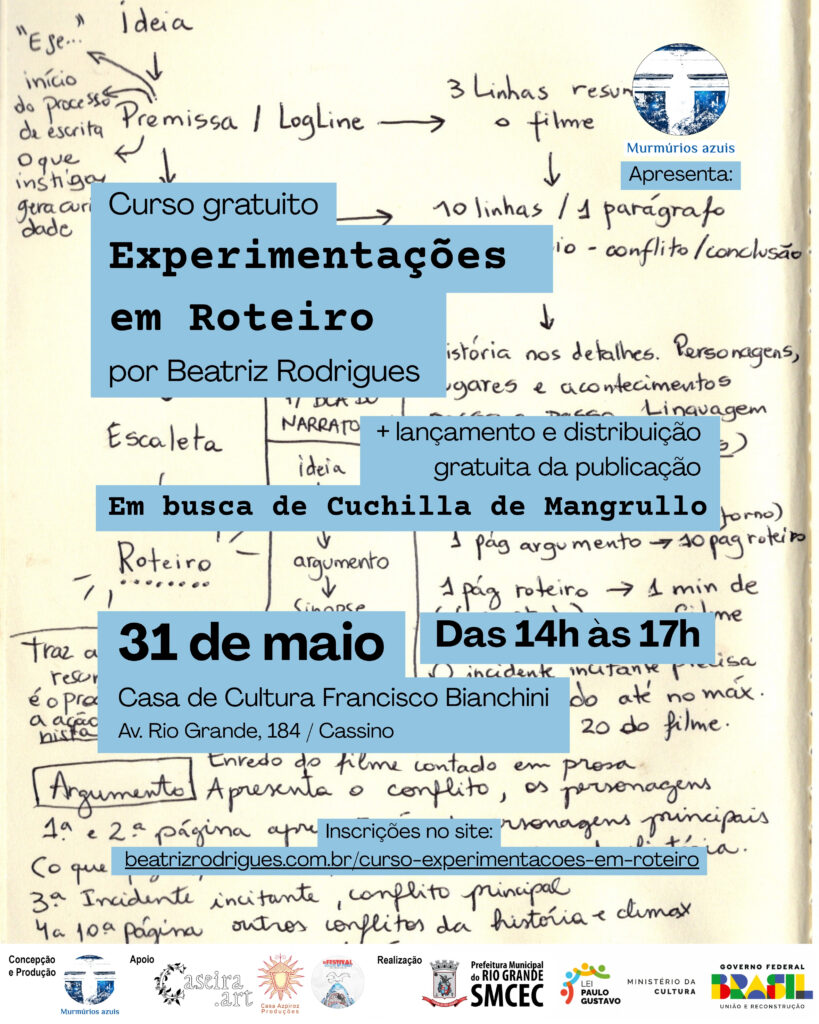 "E se..."
Ideia
início
do processo
de escrita
Premissa / LogLine
3 Linhas resum
o filme
Murmúrios azuis
Apresenta:
o que
instiga
gera curi
dade
Curso gratuito
10 linhas / 1 parágrafo
Experimentações
io - conflito/conclusão
em Roteiro
por Beatriz Rodrigues
istória nos detalhes. Personagens,
ugares e acontecimentos
Linguagem
NARRATO
Escaleta
+ lançamento e distribuição
gratuita da publicação
ideia
Em busca de Cuchilla de Mangrullo
torno)
Roteiro
argumento
1 pág argumento → 10 pag roteiro
Sinopse
1 pág roteiro → 1 min de
me
31 de maio
Das 14h às 17h
Traz a
resu
é o pro
a ação
nista
O incidente incitante precisa
do até no máx.
20 do filme.
Casa de Cultura Francisco Bianchini
Av. Rio Grande, 184 / Cassino
Enredo do filme contado em prosa
Argumento
Apresenta o conflito, os personagens
1ª e 2ª página apre
ersonagens principais
Inscrições no site:
Co que
beatrizrodrigues.com.br/curso-experimentacoes-em-roteiro
3ª Incidente incitante, conflito principal
4a 10ª página outros conflitos da história e climax
Concepção
e Produção
Murmúrios azuis
Apoio
Caseira
.art
Casa Azpiroz
Produções
FESTIVAL
Realização
Prefeitura Municipal
do RIO GRANDE
SMCEC
LEI
PAULO
GUSTAVO
MINISTÉRIO DA
CULTURA
GOVERNO FEDERAL
BRASIL
UNIÃO E RECONSTRUÇÃO